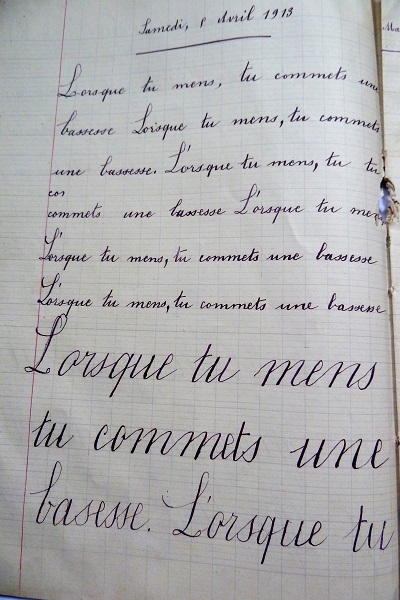 Samedi, 5 Avril 1913
Lorsque tu mens, tu commets une
bassesse Lorsque tu mens, tu commets
une bassesse. Lorsque tu mens, tu tu
commets une bassesse Lorsque tu mens
Lorsque tu mens, tu commets une bassesse
Lorsque tu mens, tu commets une bassesse
Lorsque tu mens
tu commets une
basesse. Lorsque tu